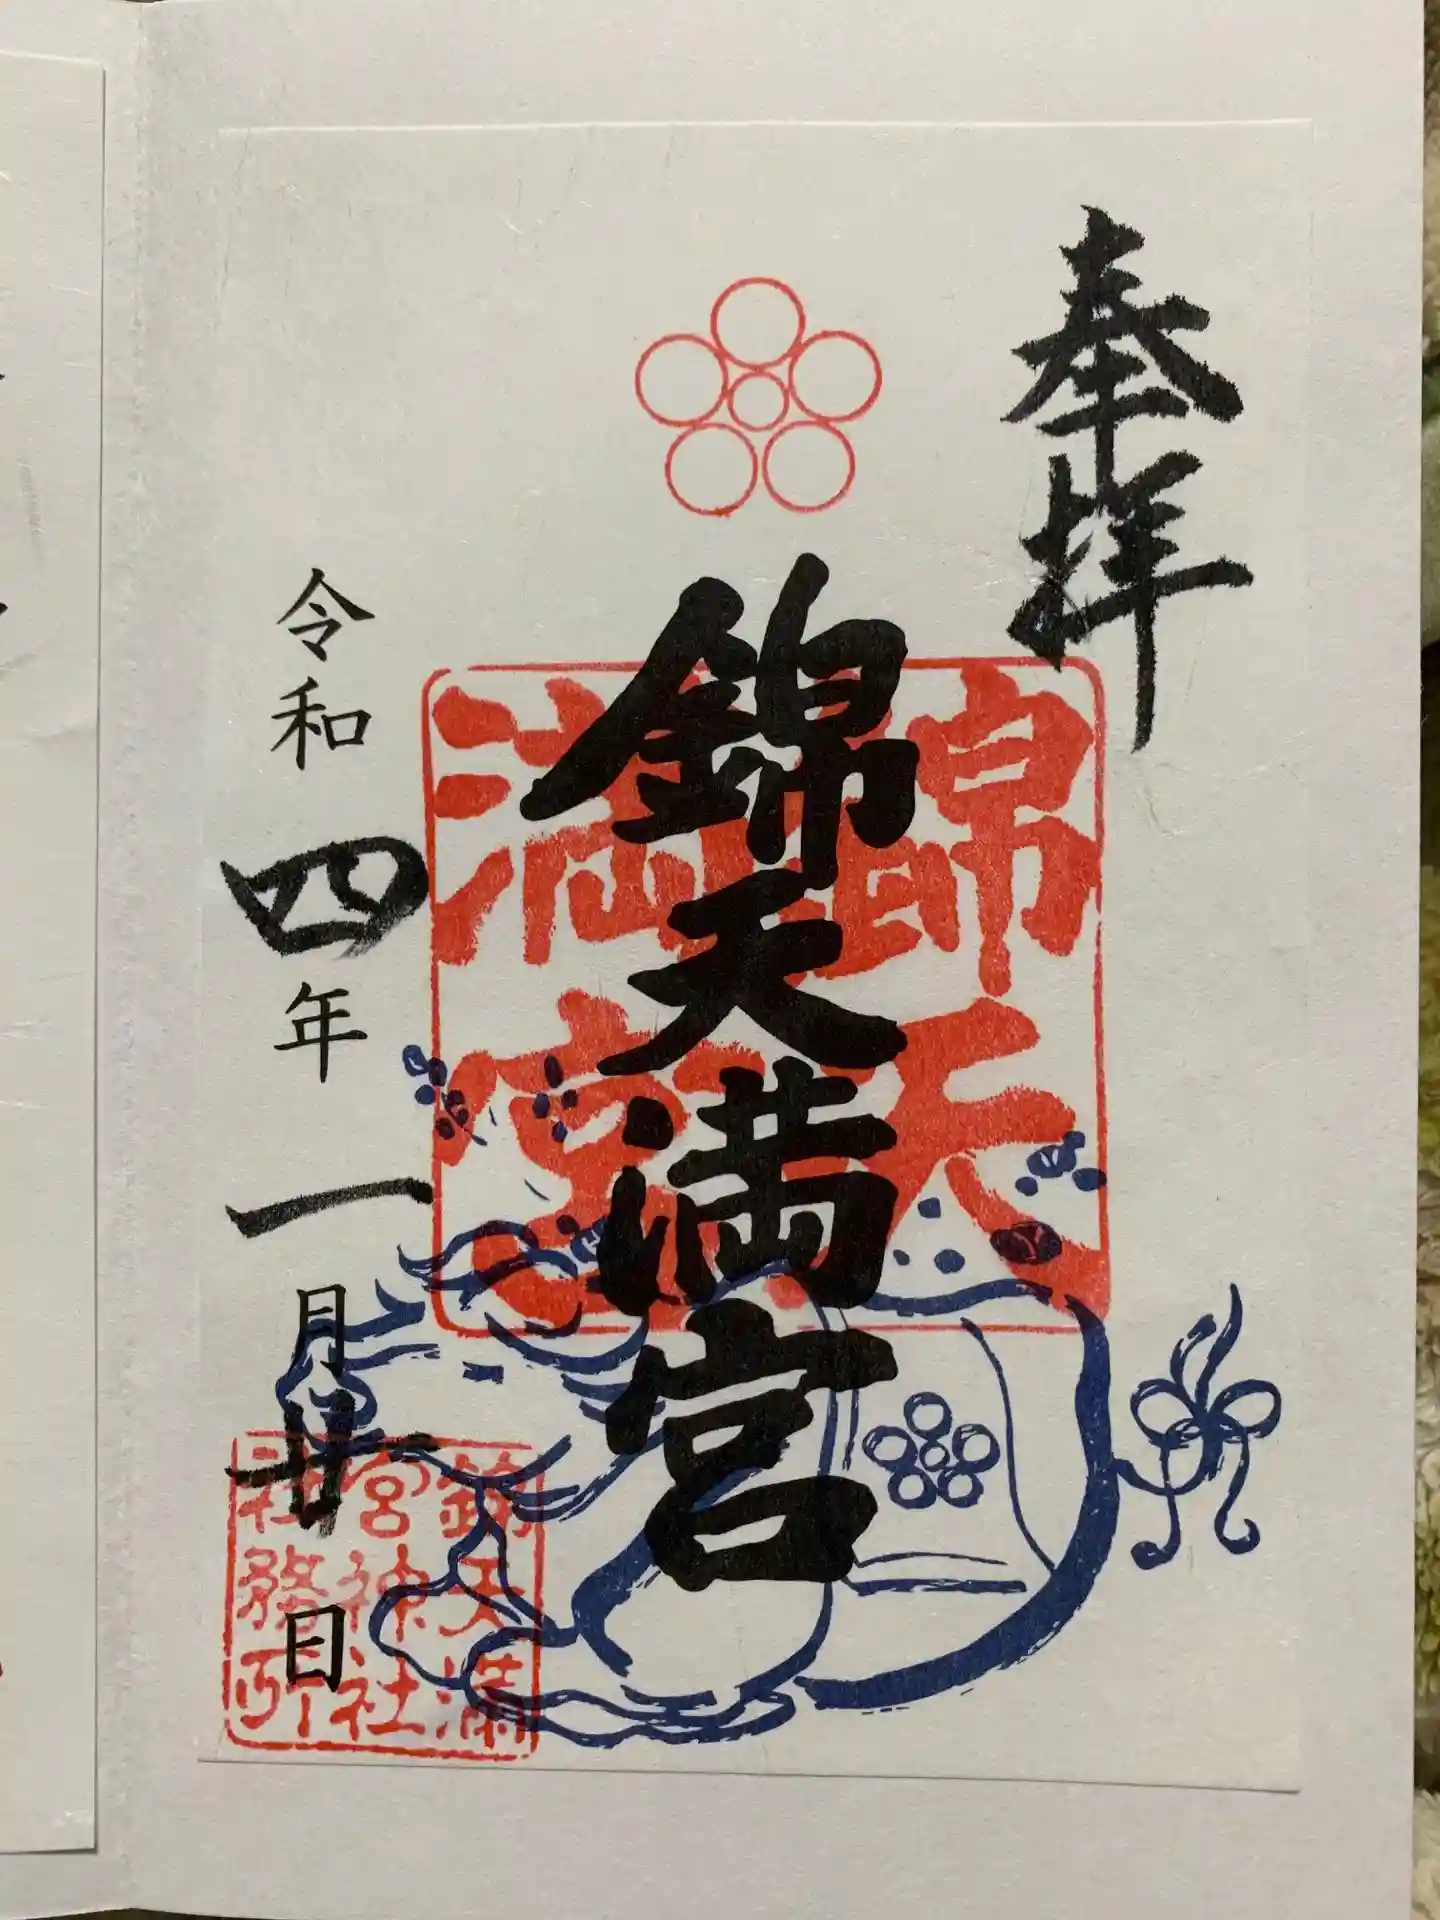 奉拝
錦天満宮
錦天
満宮
令和四年一月廿日
錦天満
宮神社
社務所